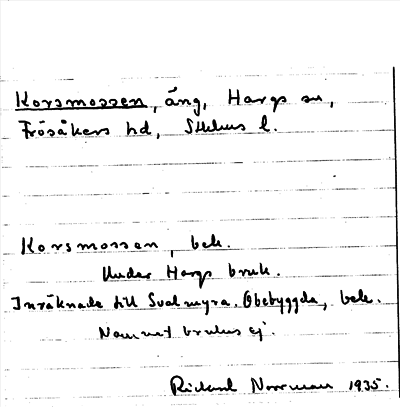 Korsmossen, äng, Hargs sn,
Frösåkers hd, Sthlms l.
Korsmossen, beb.
Under Hargs bruk.
Inräknade till Svalmyra. Obebyggda, beb.
Namnet brukas ej.
Rickard Norrman 1935.